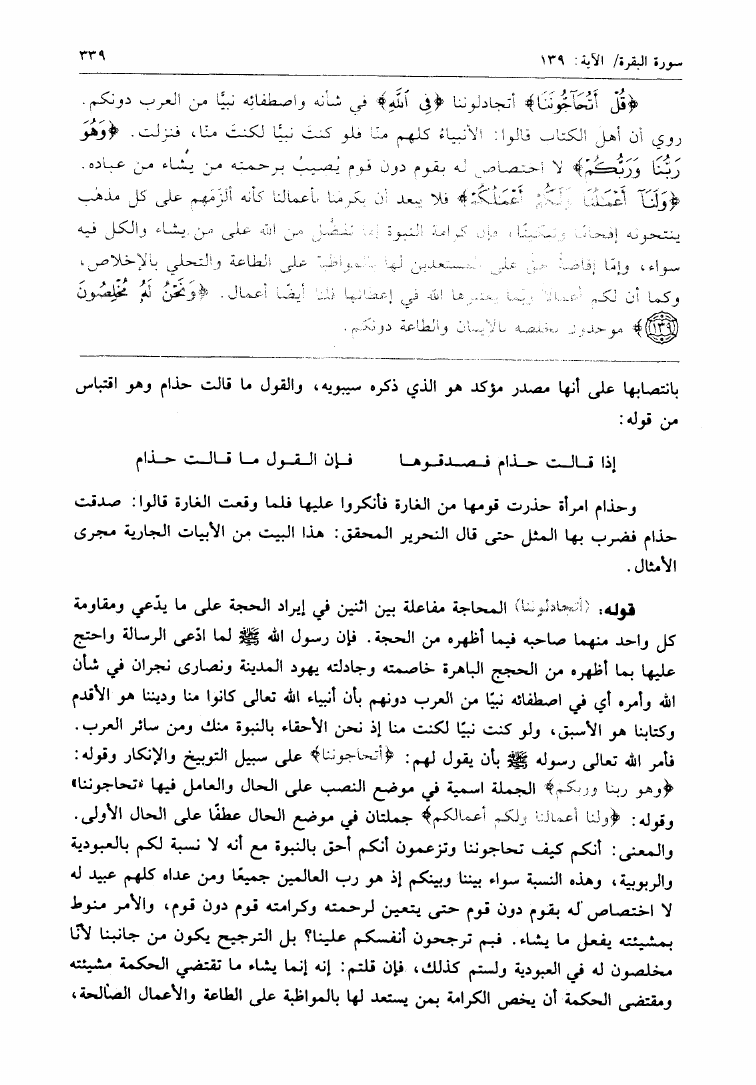 سورة البقرة/ الآية: ١٣٩
٣٣٩
﴿قُلْ أَتُحَآجُّونَنَا﴾ أتجادلوننا ﴿فِي اللَّهِ﴾ في شأنه واصطفائه نبيًّا من العرب دونكم.
روي أن أهل الكتاب قالوا: الأنبياء كلهم منا فلو كنتَ نبيًّا لكنتَ منّا، فنزلت. ﴿وَهُوَ
رَبُّنَا وَرَبُّكُمْ﴾ لا اختصاص له بقوم دون قوم يُصيبُ برحمته من يشاء من عباده.
﴿وَلَنَآ أَعْمَٰلُنَا وَلَكُمْ أَعْمَٰلُكُمْ﴾ فلا يبعد أن يكرمنا بأعمالنا كأنه ألزمهم على كل مذهب
ينتحونه إفحامًا وتبكيتًا، فإن كرامة النبوة إما تفضّل من الله على من يشاء والكل فيه
سواء، وإمّا إفاضة حق على المستعدين لها بالمواظبة على الطاعة والتحلي بالإخلاص،
وكما أن لكم أعمالاً ربّما يعتبرها الله في إعطائها فلنا أيضًا أعمال. ﴿وَنَحْنُ لَهُۥ مُخْلِصُونَ
﴿١٣٩﴾﴾ موحدون نخلصه بالإيمان والطاعة دونكم.
بانتصابها على أنها مصدر مؤكد هو الذي ذكره سيبويه، والقول ما قالت حذام وهو اقتباس
من قوله:
إذا قـالـت حـذام فـصـدقـوهـا فـإن الـقـول مـا قـالـت حـذام
وحذام امرأة حذرت قومها من الغارة فأنكروا عليها فلما وقعت الغارة قالوا: صدقت
حذام فضرب بها المثل حتى قال النحرير المحقق: هذا البيت من الأبيات الجارية مجرى
الأمثال.
قوله: (أتجادلوننا) المحاجة مفاعلة بين اثنين في إيراد الحجة على ما يدّعي ومقاومة
كل واحد منهما صاحبه فيما أظهره من الحجة. فإن رسول الله ﷺ لما ادّعى الرسالة واحتج
عليها بما أظهره من الحجج الباهرة خاصمته وجادلته يهود المدينة ونصارى نجران في شأن
الله وأمره أي في اصطفائه نبيًا من العرب دونهم بأن أنبياء الله تعالى كانوا منا وديننا هو الأقدم
وكتابنا هو الأسبق، ولو كنت نبيًا لكنت منا إذ نحن الأحقاء بالنبوة منك ومن سائر العرب.
فأمر الله تعالى رسوله ﷺ بأن يقول لهم: ﴿أتحاجوننا﴾ على سبيل التوبيخ والإنكار وقوله:
﴿وهو ربنا وربكم﴾ الجملة اسمية في موضع النصب على الحال والعامل فيها «تحاجوننا»
وقوله: ﴿ولنا أعمالنا ولكم أعمالكم﴾ جملتان في موضع الحال عطفًا على الحال الأولى.
والمعنى: أنكم كيف تحاجوننا وتزعمون أنكم أحق بالنبوة مع أنه لا نسبة لكم بالعبودية
والربوبية، وهذه النسبة سواء بيننا وبينكم إذ هو رب العالمين جميعًا ومن عداه كلهم عبيد له
لا اختصاص له بقوم دون قوم حتى يتعين لرحمته وكرامته قوم دون قوم، والأمر منوط
بمشيئته يفعل ما يشاء. فبم ترجحون أنفسكم علينا؟ بل الترجيح يكون من جانبنا لأنا
مخلصون له في العبودية ولستم كذلك، فإن قلتم: إنه إنما يشاء ما تقتضي الحكمة مشيئته
ومقتضى الحكمة أن يخص الكرامة بمن يستعد لها بالمواظبة على الطاعة والأعمال الصالحة،